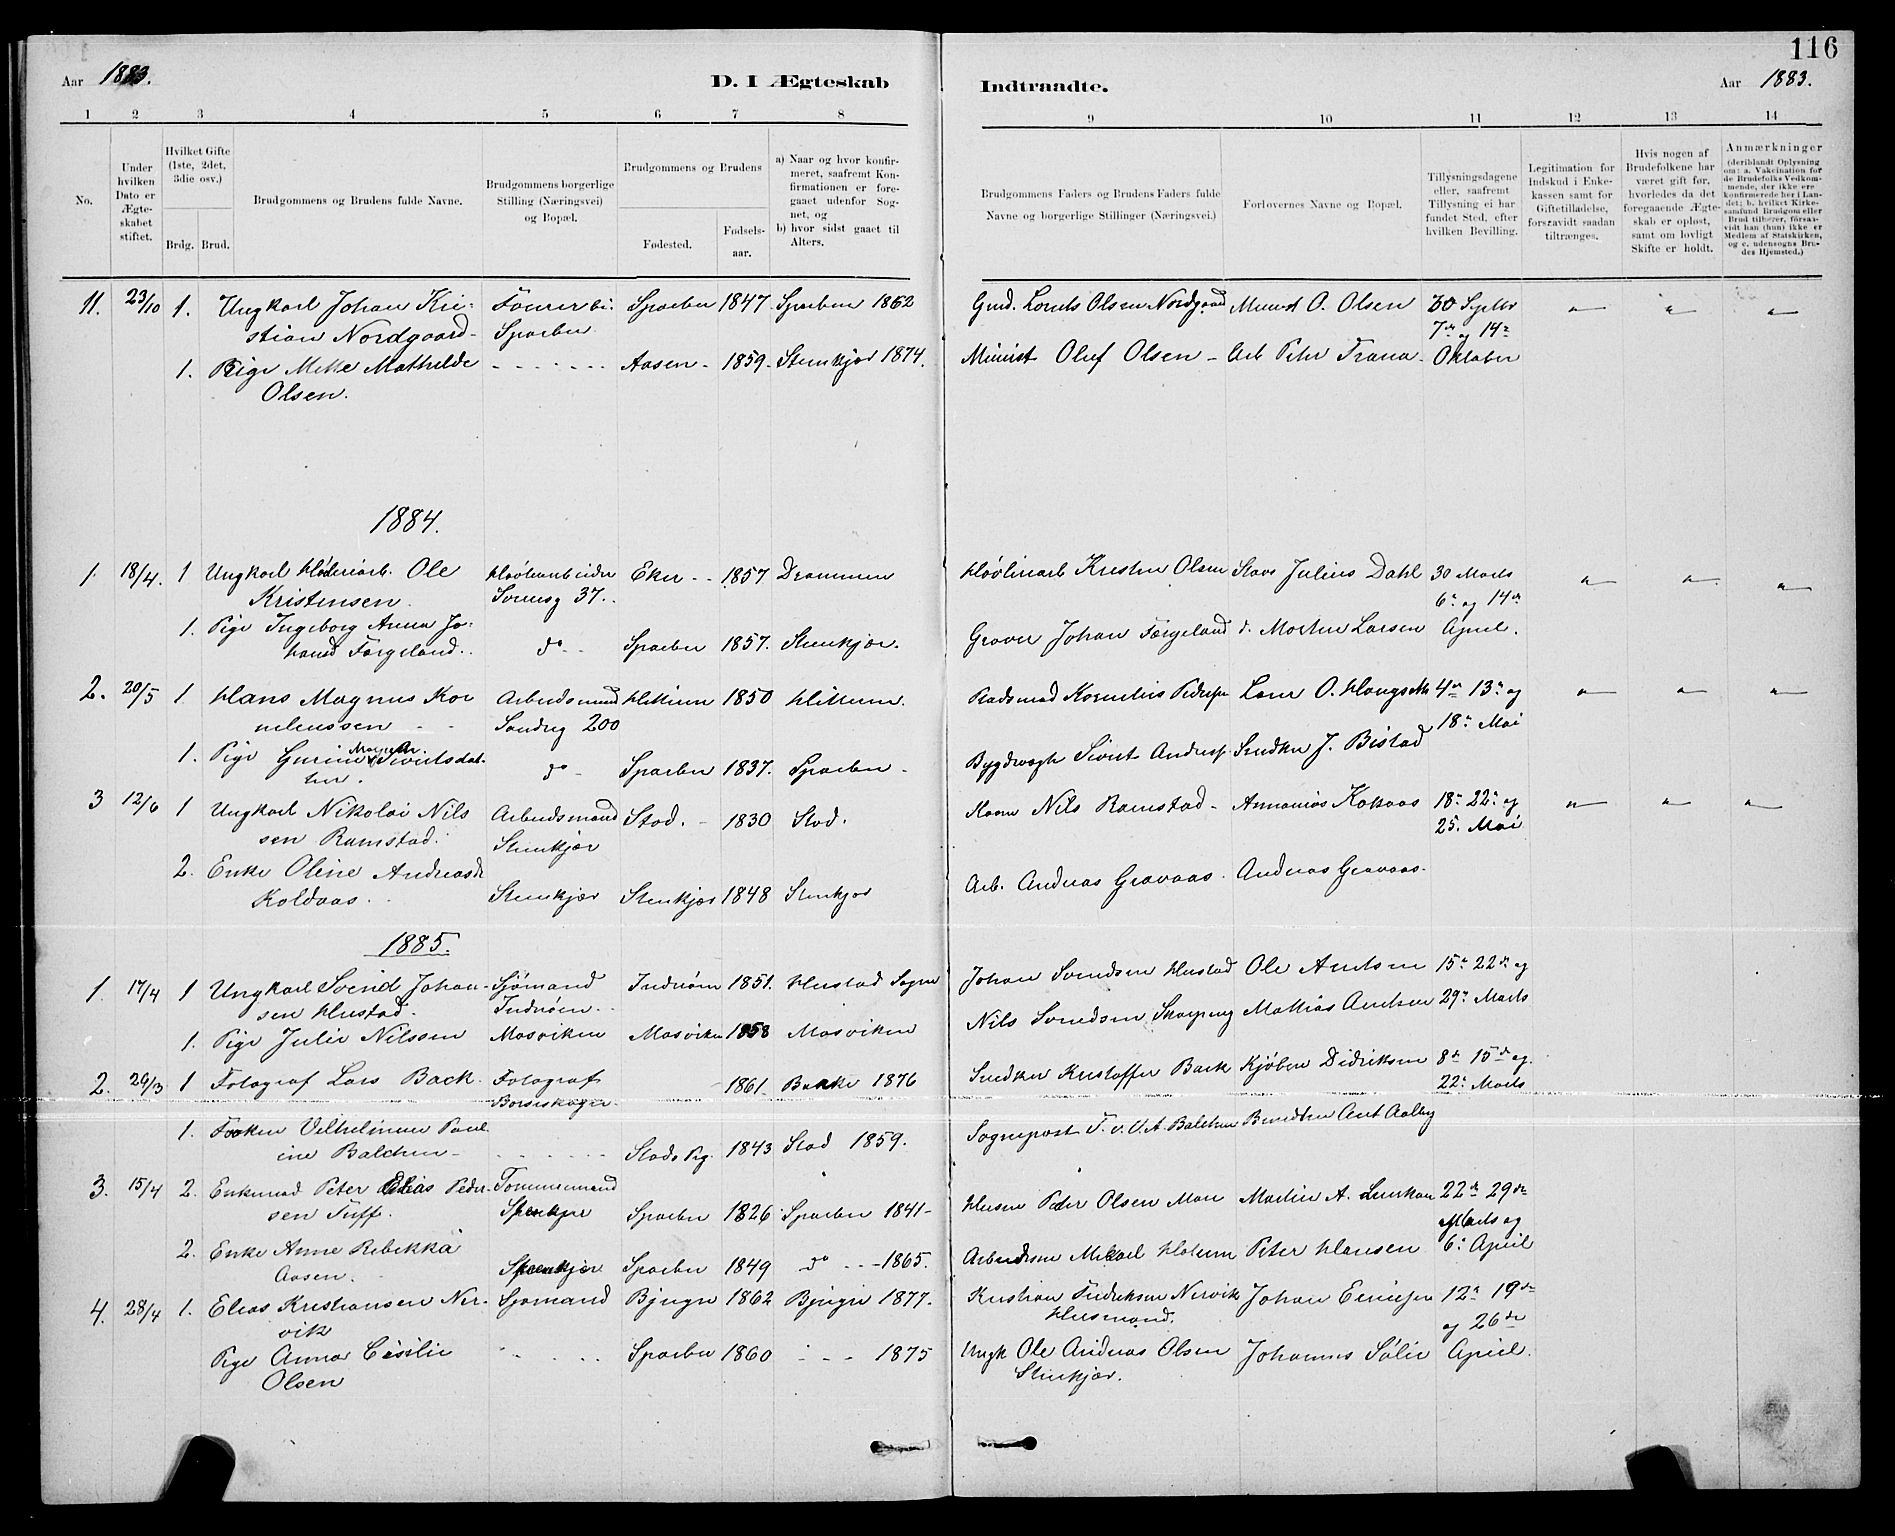 116
Aar 1883.
D. I Ægteskab
Indtraadte.
Aar 1883.
1 2 3 4 5 6 7 8 9 10 11 12 13 14
No.
Under hvilken Dato er Ægteskabet stiftet.
Hvilket Gifte (1ste, 2det, 3die osv.)
Brdg. Brud.
Brudgommens og Brudens fulde Navne.
Brudgommens borgerlige Stilling (Næringsvei) og Bopæl.
Brudgommens og Brudens
Fødested.
Fødselsaar.
a) Naar og hvor konfirmeret, saafremt Konfirmationen er foregaaet udenfor Sognet, og
b) hvor sidst gaaet til Alters.
Brudgommens Faders og Brudens Faders fulde Navne og borgerlige Stillinger (Næringsvei.)
Forlovernes Navne og Bopæl.
Tillysningsdagene eller, saafremt Tillysning ei har fundet Sted, efter hvilken Bevilling.
Legitimation for Indskud i Enkekassen samt for Giftetilladelse, forsaavidt saadan tiltrænges.
Hvis nogen af Brudefolkene har været gift før, hvorledes da det foregaaende Ægteskab er opløst, samt om lovligt Skifte er holdt.
Anmærkninger
(deriblandt Oplysning om: a. Vakcination for de Brudefolks Vedkommende, der ikke ere konfirmerede her i Landet; b. hvilket Kirkesamfund Brudgom eller Brud tilhører, forsaavidt han (hun) ikke er Medlem af Statskirken, og c. udensogns Brudes Hjemsted.)
11. 23/10 1. Ungkarl Johan Kri- Sparbu 1847. Sparbu 1862 Gmd. Lorents Olsen Nordgaard O. Olsen 30 Septbr
stian Nordgaard Sparbu 7de og 14de
1. Pige Mette Mathilde Aasen 1859. Stenkjær 1874. Oluf Olsen Arb Peter Trana Oktober
Olsen.
1884.
1. 18/4. 1 Ungkarl Høvleriarb. Ole Høvleriarbeider Eker 1857 Drammen Høvleriarb Kristen Olsen Julius Dahl 30 Marts
Kristensen. 37. 6te og 14de
1. Pige Ingeborg Anna Jo- do Sparbu 1857. Stenkjær. Graver Johan Færgeland Morten Larsen April.
hansd Færgeland.
2. 20/5 1. Hans Magnus Kor Arbeidsmand Hitteren 1850 Hitteren. Kornelius Pedersen 4de 13de og
neliussen Sandveg 200 18de Mai
1. Pige Gurine Sivertsdat- do Sparbu 1837. Sparbu Sivert Anders. Snedker J. Bistad
ter.
3 12/6 1 Ungkarl Nikolai Nils Arbeidsmand Stod. 1830 Stod. Nils Ramstad Annanias 18de 22de og
sen Ramstad. Stenkjær 25. Mai
2. Enke Oline Andreasd Stenkjær Stenkjær 1848 Stenkjær Arb. Andreas Gravaas. Andreas Gravaas.
Koldaas.
1885.
1. 17/4 1 Ungkarl Svend Johan- Sjømand Inderøen 1851. Hustad Sogn Johan Svendsen Hustad Ole Arntsen 15de 22de og
sen Hustad. Inderøen. 29de Marts
1. Pige Julie Nilsen Mosviken Mosviken 1858 Mosviken Nils Svendsen Mathias Arntsen
2. 29/3 1 Fotograf Lars Back Fotograf 1861. Bakke 1876 Snedker Kristoffer Back Kjøbm Didriksen 8de 15de og
22de Marts
1. Frøken Vilhelmine Paul Stods Prg. 1843 Stod 1859. Sogneprest F. v. V. A. Balchen Bendten Ant Aalby
ine Balchen
3. 15/4 2. Enkemand Peter Elias Peder- Tømmermand Sparbu 1826 Sparbu 1841 Peder Olsen Martin A. 22de 29de
sen Tuff. Stenkjær Marts og
2. Enke Anne Rebekka Stenkjær Sparbu 1849 do 1865. Mikael Peter Hansen 6te April
Aasen.
4. 28/4 1. Elias Kristiansen Ner- Sjømand Bjugn 1862 Bjugn 1877. Kristian Fredriksen Nervik Johan 12te 19de
vik Husmand. og 26de
Pige Anna Cesilie Sparbu 1860 1875 Ungk Ole Andreas Olsen Johannes Sølie April.
Olsen Stenkjær.